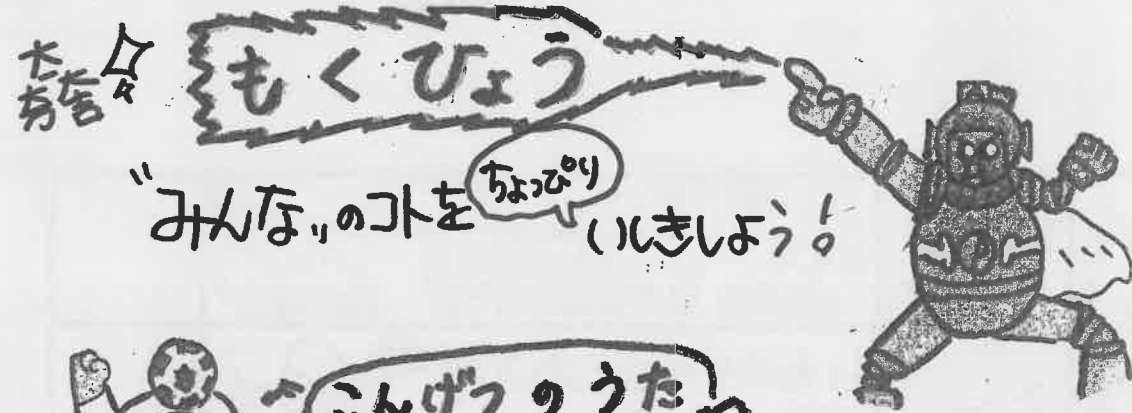 もくひょう
"みんな"のコトを ちょっぴり いしきしよう!
こんげつのうた